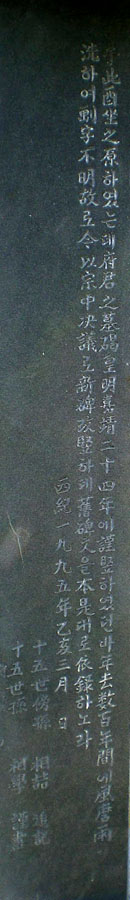 于此酉坐之原하였는데府君之墓碣皇明嘉靖二十四年에謹竪하였던바年去數百年間에風磨雨
洗하여刓字不明故로今以宗中决議로新碑改竪하며舊碑文을本是대로依錄하노라
西紀一九九五年乙亥三月 日
十五世傍孫 相喆 追記
十五世孫 相學 謹書